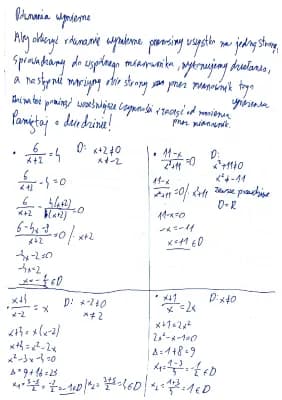 Równania wymierne
Aby obliczyć równanie wymierne przenosimy wszystko na jedną stronę,
sprowadzamy do wspólnego mianownika, wykonujemy działania,
a następnie mnożymy obie strony przez mianownik tego
wyrażenia
można pominąć wcześniejsze czynności i zacząć od mnożenia
przez mianownik.
Pamiętaj o dziedzinie!
• 6/(x+2) = 4 D: x+2≠0
x≠-2
6/(x+2) - 4 = 0
6/(x+2) - 4(x+2)/(x+2) = 0
(6-4x-8)/(x+2) = 0 / · x+2
-4x-2=0
-4x=2
x=-1/2 ∈ D
• (11-x)/(x²+11) = 0 D:
x²+11≠0
x²≠-11
(11-x)/(x²+11) = 0 / · x²+11 zawsze prawdziwe
D=R
11-x=0
-x=-11
x=11 ∈ D
• (x+4)/(x-2) = x D: x-2≠0
x≠2
x+4 = x(x-2)
x+4 = x²-2x
x²-3x-4=0
Δ=9+16=25
x₁=(3-5)/2=-2/2=-1 ∈ D / x₂=(3+5)/2=4 ∈ D
• (x+1)/x = 2x D: x≠0
x+1=2x²
2x²-x-1=0
Δ=1+8=9
x₁=(1-3)/4=-1/2 ∈ D
x₂=(1+3)/4=1 ∈ D